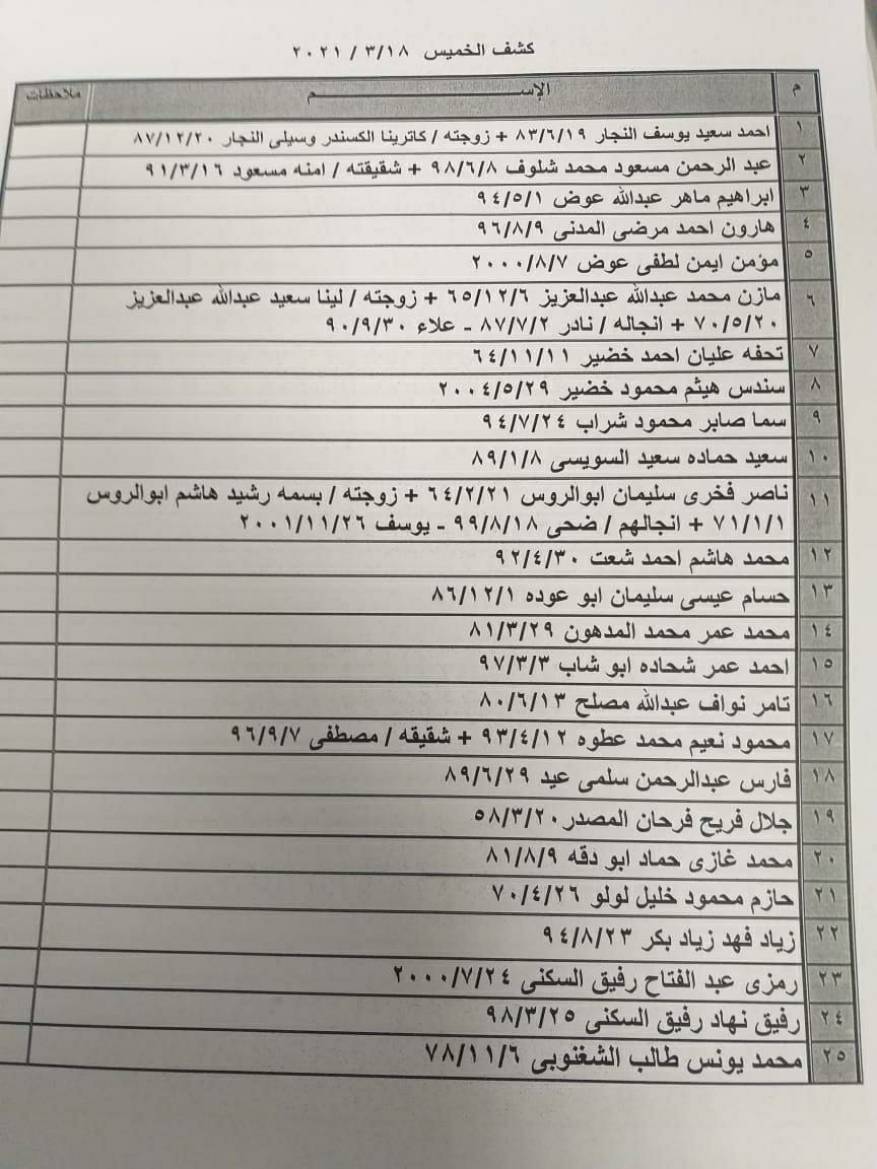 كشف الخميس ٢٠٢١ / ٣/١٨
م الإســـــــم ملاحظات
١ احمد سعيد يوسف النجار ٨٣/٦/١٩ + زوجته / كاترينا الكسندر وسيلى النجار ٨٧/١٢/٢٠
٢ عبد الرحمن مسعود محمد شلوف ٩٨/٦/٨ + شقيقته / امنه مسعود ٩١/٣/١٦
٣ ابراهيم ماهر عبدالله عوض ٩٤/٥/١
٤ هارون احمد مرضى المدنى ٩٦/٨/٩
٥ مؤمن ايمن لطفى عوض ٢٠٠٠/٨/٧
٦ مازن محمد عبدالله عبدالعزيز ٦٥/١٢/٦ + زوجته / لينا سعيد عبدالله عبدالعزيز
٧٠/٥/٢٠ + انجاله / نادر ٨٧/٧/٢ - علاء ٩٠/٩/٣٠
٧ تحفه عليان احمد خضير ٦٤/١١/١١
٨ سندس هيثم محمود خضير ٢٠٠٤/٥/٢٩
٩ سما صابر محمود شراب ٩٤/٧/٢٤
١٠ سعيد حماده سعيد السويسى ٨٩/١/٨
١١ ناصر فخرى سليمان ابوالروس ٦٤/٢/٢١ + زوجته / بسمه رشيد هاشم ابوالروس
٧١/١/١ + انجالهم / ضحى ٩٩/٨/١٨ - يوسف ٢٠٠١/١١/٢٦
١٢ محمد هاشم احمد شعت ٩٢/٤/٣٠
١٣ حسام عيسى سليمان ابو عوده ٨٦/١٢/١
١٤ محمد عمر محمد المدهون ٨١/٣/٢٩
١٥ احمد عمر شحاده ابو شاب ٩٧/٣/٣
١٦ تامر نواف عبدالله مصلح ٨٠/٦/١٣
١٧ محمود نعيم محمد عطوه ٩٣/٤/١٢ + شقيقه / مصطفى ٩٦/٩/٧
١٨ فارس عبدالرحمن سلمى عيد ٨٩/٦/٢٩
١٩ جلال فريح فرحان المصدر ٥٨/٣/٢٠
٢٠ محمد غازى حماد ابو دقه ٨١/٨/٩
٢١ حازم محمود خليل لولو ٧٠/٤/٢٦
٢٢ زياد فهد زياد بكر ٩٤/٨/٢٣
٢٣ رمزى عبد الفتاح رفيق السكنى ٢٠٠٠/٧/٢٤
٢٤ رفيق نهاد رفيق السكنى ٩٨/٣/٢٥
٢٥ محمد يونس طالب الشغنوبى ٧٨/١١/٦